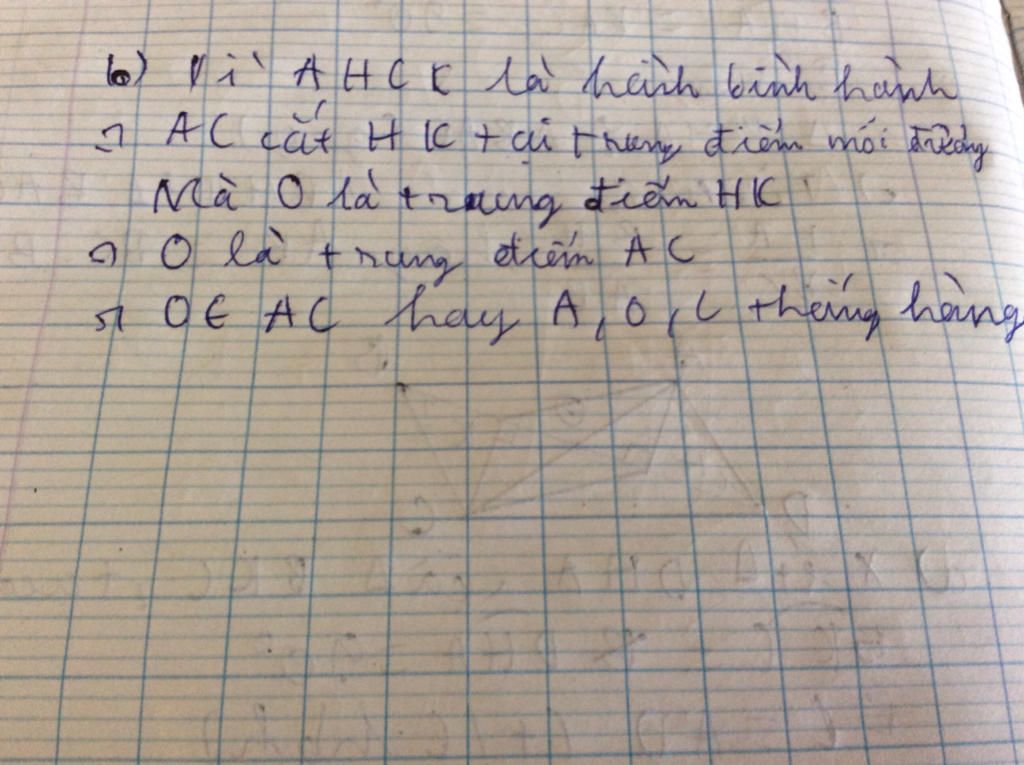 b) Vì AHCK là hình bình hành
=> AC cắt HK tại trung điểm mỗi đường
Mà O là trung điểm HK
=> O là trung điểm AC
=> O ∈ AC hay A, O, C thẳng hàng